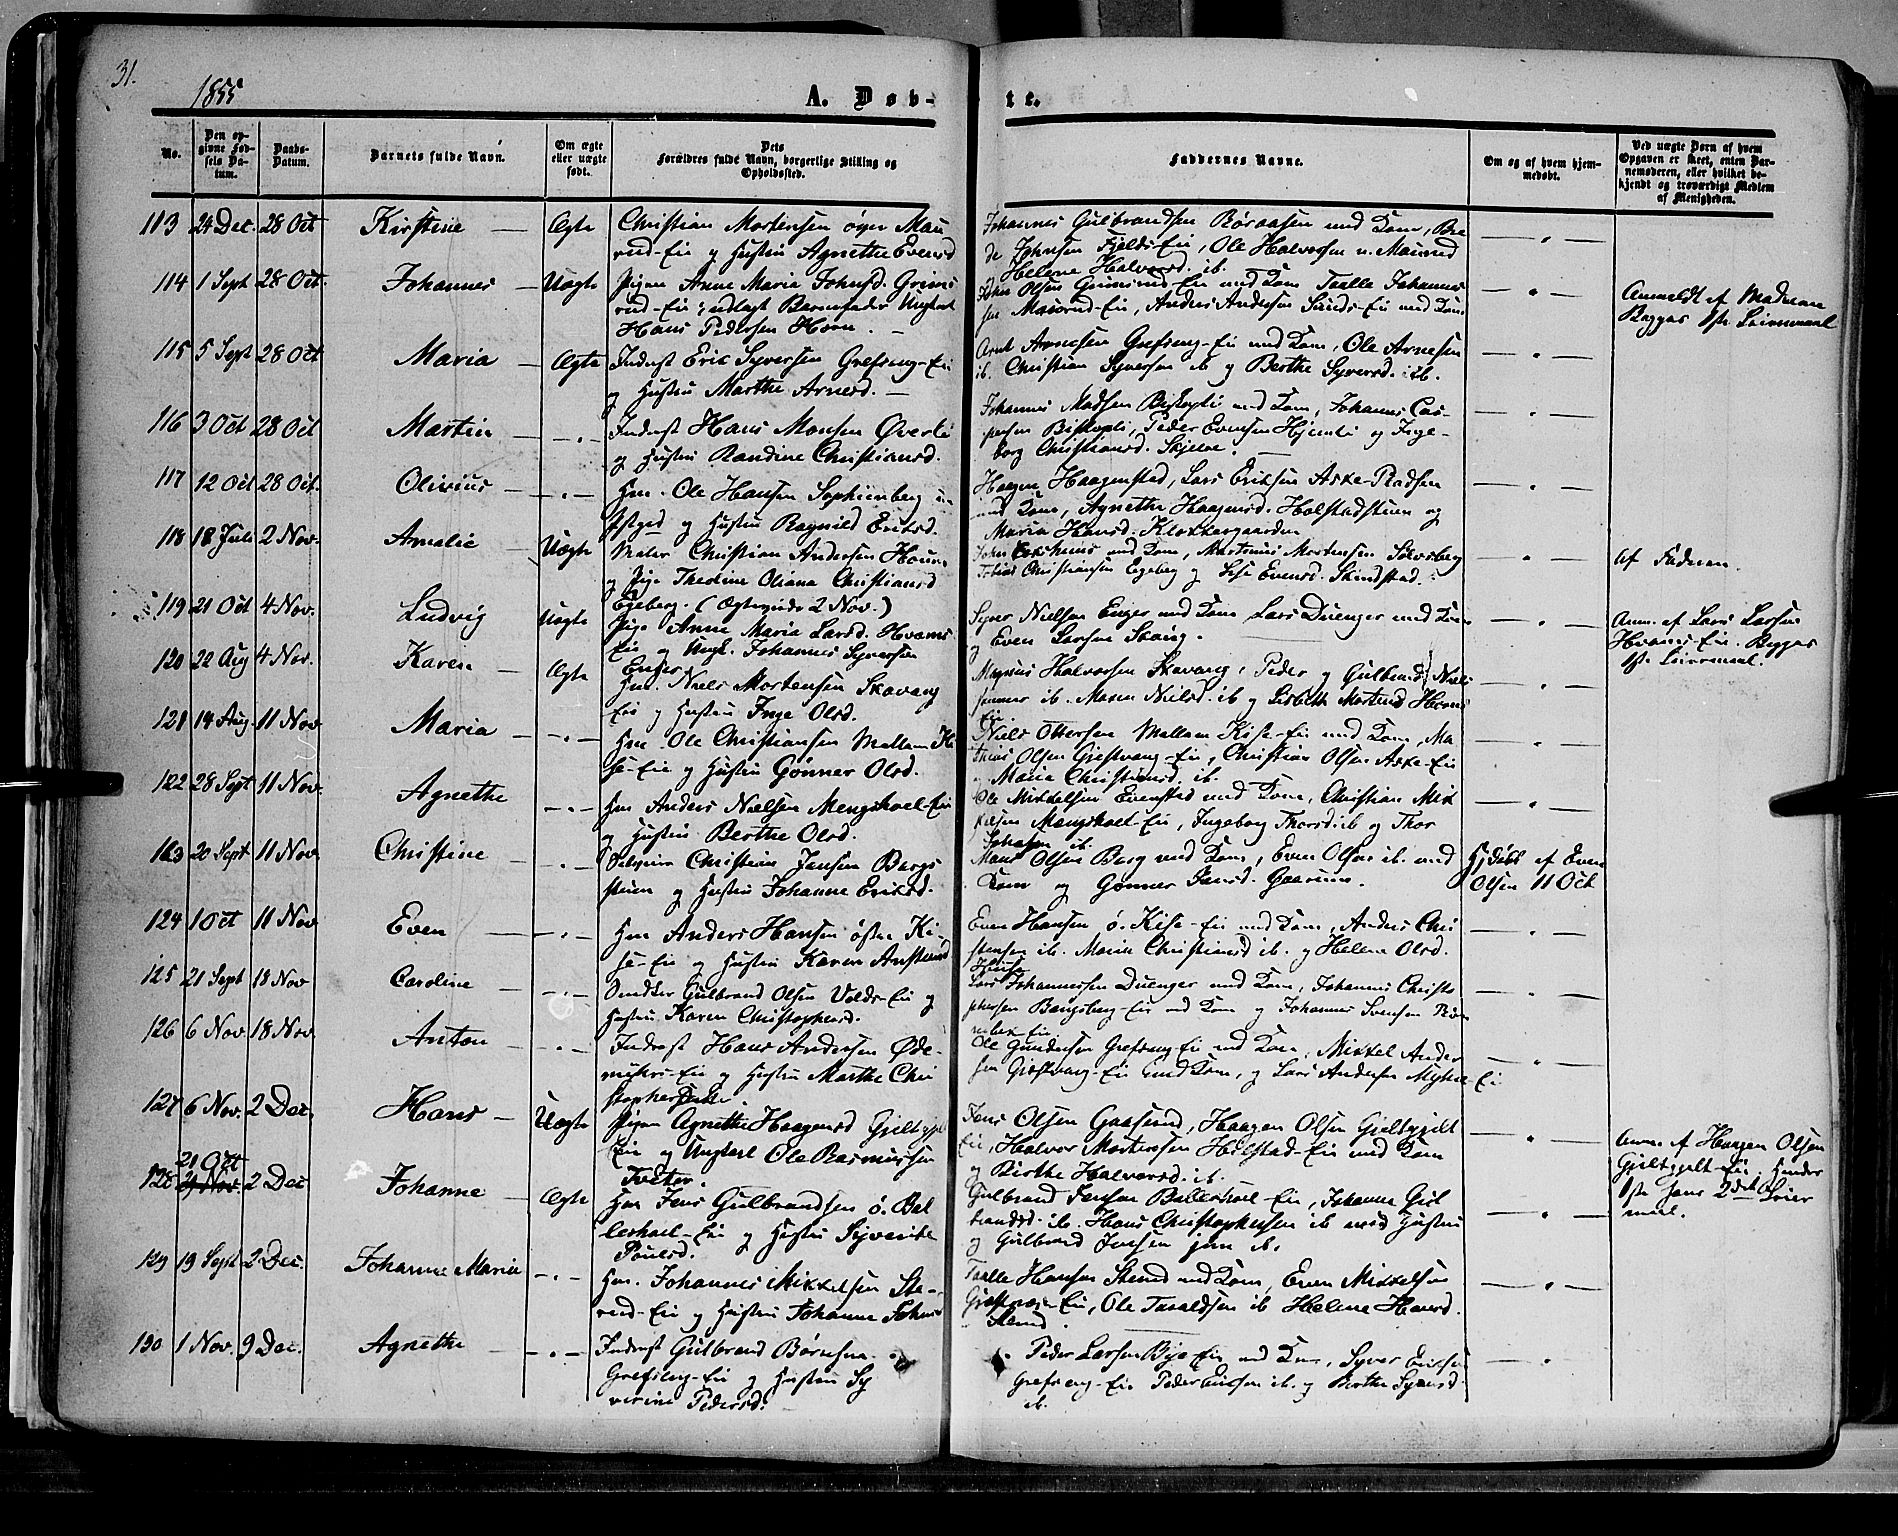 31.
1855
A. Døb-
te.
No.
Den op-
givne Fød-
sels Da-
tum.
Daabs-
Datum.
Barnets fulde Navn.
Om ægte
eller uægte
født.
Dets
Forældres fulde Navn, borgerlige Stilling og
Opholdssted.
Faddernes Navne.
Om og af hvem hjem-
medøbt.
Ved uægte Børn af hvem
Opgaven er skeet, enten Bar-
nemoderen, eller hvilket be-
kjendt og troværdigt Medlem
af Menigheden.
113 24 Dec. 28 Oct Kirstine — Ægte
Christian Mortensen
rud-Eie og Hustru Agnethe Evensd
Johannes Gulbrandsen Røraasen med Kone,
Johnsen Fjelds-Eie, Ole Halvorsen n. Maurud
og Helene Halvorsd. ib.
114 1 Sept 28 Oct. Johannes — Uægte
Pigen Anne Maria Johnsd. Grims
rud-Eie; udlagt Barnefader Ungkarl
Hans Pedersen Horn. —
Olsen Grimsrud-Eie med Kone Taalle Johannes
sen Maurud-Eie, Anders Andersen Sunds-Eie med Kone
Anmeldt af Madman
Begges 1ste Leiermaal
115 5 Sept 28 Oct Maria — Ægte
Inderst Eric Syversen Grefseng-Eie
og Hustru Marthe Arnesd. —
Arnt Arnesen Grefseng-Eie med Kone, Ole Arnesen
ib. Christian Syversen ib og Berthe Syversd. ib.
116 3 Oct 28 Oct Martin — „ —
Inderst Hans Monsen Øverli
og Hustru Randine Christiansd.
Johannes Madsen Biskopli med Kone, Johannes Cas-
persen Biskopli, Peder Evensen Hjemli og Inge-
borg Christiansd. Skjelve.
117 12 Oct 28 Oct. Olivius — „ —
Hm. Ole Hansen Sophienberg
og Hustru Ragnild Eriksd.
Haagen Haagenstad, Lars Eriksen Aske-Pladsen
med Kone, Agnethe Haagensd. Holstadstuen og
Maria Hansd. Klokkergaarden
118 18 Juli 2 Nov. Amalie — Uægte
Maler Christian Andersen
og Pige Theoline Oliana Christiansd
Egeberg. (Ægteviede 2 Nov.)
med Kone, Martinus Mortensen Solvsberg
Tobias Christiansen Egeberg og Lise Evensd. Skindstad.
Af Faderen.
119 21 Oct 4 Nov. Ludvig Uægte
Pige Anne Maria Larsd. Hvams
Eie og Ungk. Johannes Syversen
Enger
Syver Nielsen Enger med Kone Lars Duenger med Kone
og Even Larsen Skaug.
Anm. af Lars Larsen
Hvams-Eie. Begges
1ste Leiermaal.
120 22 Aug 4 Nov. Karen — Ægte
Hm. Niels Mortensen Skavang
Eie og Hustru Inge Olsd.
Magnus Halvorsen Skavang, Peder og Gulbrand Niels
sønner ib. Maren Nielsd. ib og Lisbeth Mortensd Hvams
Eie.
121 14 Aug. 11 Nov Maria — „ —
Hm. Ole Christiansen Mellem Ki
se-Eie og Hustru Gønner Olsd.
Niels Ottersen Mellem Kise-Eie med Kone, Ma
thias Olsen Gjestvang-Eie, Christian Olsen Aske-Eie
Maria Christiansd. ib.
122 28 Sept 11 Nov. Agnethe — „ —
Hm Anders Nielsen Mengshoel-Eie
og Hustru Berthe Olsd.
Ole Mikkelsen Evenstad med Kone, Christian Mik
kelsen Mengshoel-Eie, Ingeborg Thorsd ib og Thor
Johnsen ib.
123 20 Sept 11 Nov Christine — „ —
Christian Jensen Bergs
stuen og Hustru Johanne Eriksd.
Mons Olsen Berg med Kone, Even Olsen ib. med
Kone og Gønner Jensd. Gaarum.
Hj.døbt af Even
Olsen 11 Oct
124 1 Oct 11 Nov Even — „ —
Hm Anders Hansen østre Ki-
se-Eie og Hustru Karen Anstensd
Even Hansen ø. Kise-Eie med Kone, Anders Chri
stensen ib. Maria Christiansd ib. og Helene Olsd.
125 21 Sept 18 Nov Caroline — „ —
Snedker Gulbrand Olsen Volds-Eie og
Hustru Karen Christophersd.
Lars Johannessen Duenger med Kone, Johannes Christo
phersen Bangsberg-Eie med Kone og Johannes Svensen
126 6 Nov. 18 Nov. Anton — „ —
Inderst Hans Andersen Øde-
-Eie og Hustru Marthe Chri
stophersd.
Ole Gundersen Grefseng-Eie med Kone, Mikkel Ander
sen Gjestvang-Eie med Kone, og Lars Andersen -Eie
127 6 Nov. 2 Dec. Hans — Uægte
Pigen Agnethe Haagensd Gjeltygilt
Eie og Ungkarl Ole Rasmussen
Tveter.
Jens Olsen Gaasund, Haagen Olsen Gjeltygilt
Eie, Halvor Mortensen Holstad-Eie med Kone
og Birthe Halvorsd. ib.
Anm. af Haagen Olsen
Gjeltygilt-Eie. Hendes
1ste hans 2det Leier
maal.
21 Oct
128 2 Dec Johanne — Ægte
Hm Jens Gulbrandsen ø. Bal
lerhoel-Eie og Hustru Syverine
Poulsd.
Gulbrand Jensen Ballerhoel-Eie, Johanne Gul
brandsd. ib. Hans Christophersen ib med Hustru
og Gulbrand Jensen jun ib.
129 19 Sept 2 Dec. Johanne Maria — „ —
Hm. Johannes Mikkelsen Ste-
rud-Eie og Hustru Johanne Johnsd
Taalle Hansen Sterud med Kone, Even Mikkelsen
Gjestvang-Eie, Ole Taraldsen ib Helene Hansd.
Sterud.
130 1 Nov. 9 Dec. Agnethe — „ —
Inderst Gulbrand Børresen
Grefseng-Eie og Hustru Sy
verine Pedersd.
Peder Larsen Bye-Eie med Kone, Syver Eriksen
Grefseng-Eie Peder Eriksen ib. og Berthe Syversd.
ib.